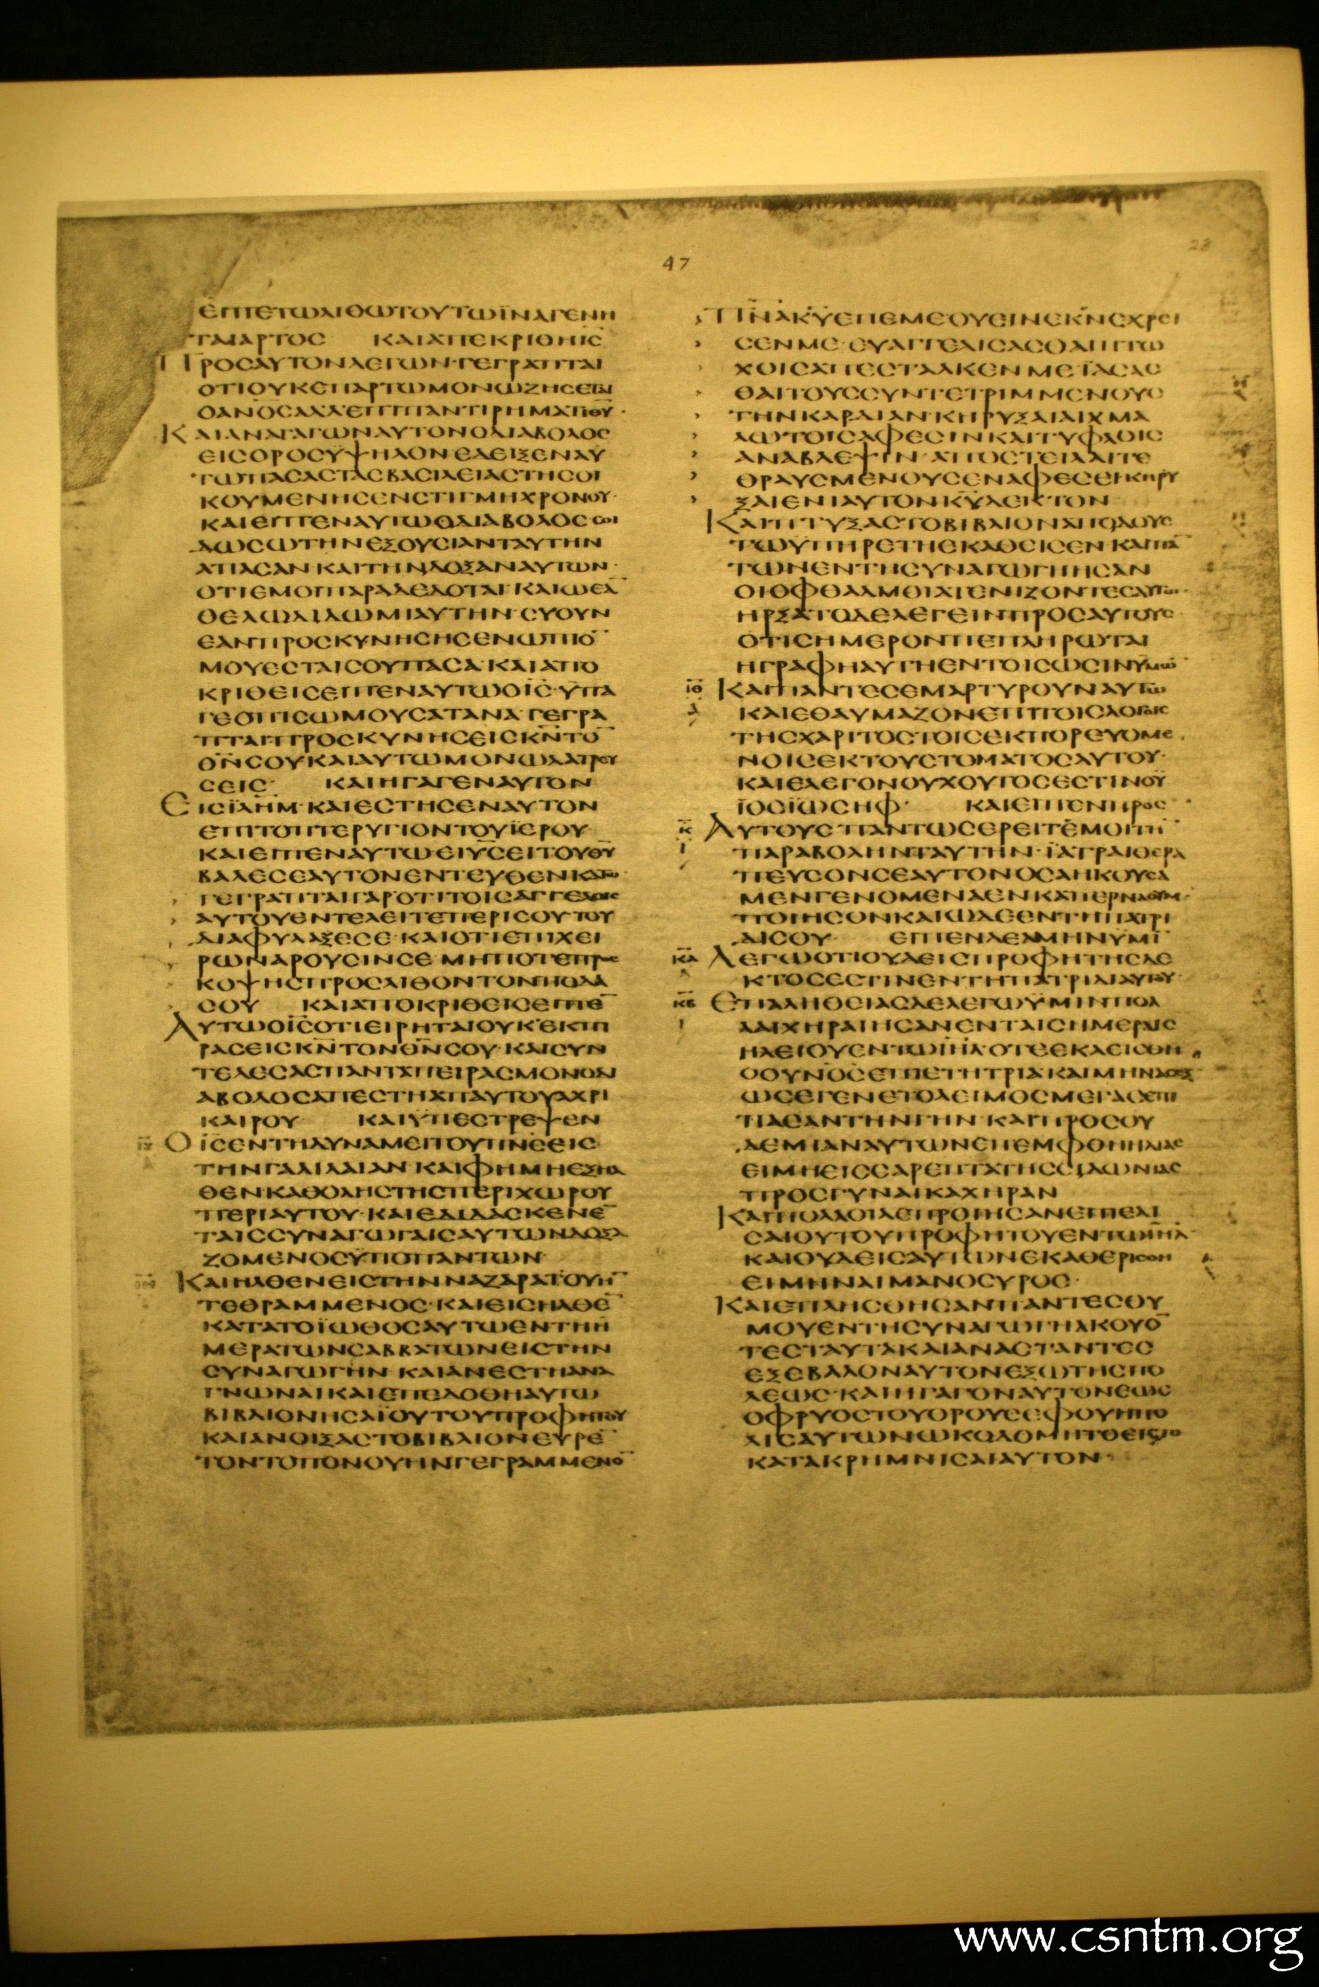 47
28
ΕΙΠΕΤΩΛΙΘΩΤΟΥΤΩΪΝΑΓΕΝΗ
ΤΑΙΑΡΤΟΣ ΚΑΙΑΠΕΚΡΙΘΗΙΣ
ΠΡΟΣΑΥΤΟΝΛΕΓΩΝ·ΓΕΓΡΑΠΤΑΙ
ΟΤΙΟΥΚΕΠΑΡΤΩΜΟΝΩΖΗΣΕΤΑΙ
ΟΑΝΟΣΑΛΛΕΠΙΠΑΝΤΙΡΗΜΑΤΙΘΥ·
ΚΑΙΑΝΑΓΑΓΩΝΑΥΤΟΝΟΔΙΑΒΟΛΟΣ
ΕΙΣΟΡΟΣΥΨΗΛΟΝΕΔΕΙΞΕΝΑΥ
ΤΩΠΑΣΑΣΤΑΣΒΑΣΙΛΕΙΑΣΤΗΣΟΙ
ΚΟΥΜΕΝΗΣΕΝΣΤΙΓΜΗΧΡΟΝΟΥ·
ΚΑΙΕΙΠΕΝΑΥΤΩΟΔΙΑΒΟΛΟΣΣΟΙ
ΔΩΣΩΤΗΝΕΞΟΥΣΙΑΝΤΑΥΤΗΝ
ΑΠΑΣΑΝΚΑΙΤΗΝΔΟΞΑΝΑΥΤΩΝ·
ΟΤΙΕΜΟΙΠΑΡΑΔΕΔΟΤΑΙ·ΚΑΙΩΕΑ̅
ΘΕΛΩΔΙΔΩΜΙΑΥΤΗΝ·ΣΥΟΥΝ
ΕΑΝΠΡΟΣΚΥΝΗΣΗΣΕΝΩΠΙΟ̅
ΜΟΥΕΣΤΑΙΣΟΥΠΑΣΑ·ΚΑΙΑΠΟ
ΚΡΙΘΕΙΣΕΙΠΕΝΑΥΤΩΟΙΣ·ΥΠΑ
ΓΕΟΠΙΣΩΜΟΥΣΑΤΑΝΑ·ΓΕΓΡΑ
ΠΤΑΙΠΡΟΣΚΥΝΗΣΕΙΣΚΝΤΟ̅
ΘΝΣΟΥΚΑΙΑΥΤΩΜΟΝΩΛΑΤΡΕΥ
ΣΕΙΣ· ΚΑΙΗΓΑΓΕΝΑΥΤΟΝ
ΕΙΣΪΛΗΜ·ΚΑΙΕΣΤΗΣΕΝΑΥΤΟΝ
ΕΠΙΤΟΠΤΕΡΥΓΙΟΝΤΟΥΪΕΡΟΥ·
ΚΑΙΕΙΠΕΝΑΥΤΩΕΙΥΣΕΙΤΟΥΘΥ
ΒΑΛΕΣΕΑΥΤΟΝΕΝΤΕΥΘΕΝΚΑΤΩ
ΓΕΓΡΑΠΤΑΙΓΑΡΟΤΙΤΟΙΣΑΓΓΕΛΟΙΣ
ΑΥΤΟΥΕΝΤΕΛΕΙΤΕΠΕΡΙΣΟΥΤΟΥ
ΔΙΑΦΥΛΑΞΕΣΕ·ΚΑΙΟΤΙΕΠΙΧΕΙ
ΡΩΝΑΡΟΥΣΙΝΣΕ·ΜΗΠΟΤΕΠΡΟΣ
ΚΟΨΗΣΠΡΟΣΛΙΘΟΝΤΟΝΠΟΔΑ
ΣΟΥ ΚΑΙΑΠΟΚΡΙΘΕΙΣΕΙΠΕ̅
ΑΥΤΩΟΙΣΟΤΙΕΙΡΗΤΑΙΟΥΚΕΚΠΙ
ΡΑΣΕΙΣΚΝΤΟΝΘΝΣΟΥ·ΚΑΙΣΥΝ
ΤΕΛΕΣΑΣΠΑΝΤΑΠΕΙΡΑΣΜΟΝΟΔΙ
ΑΒΟΛΟΣΑΠΕΣΤΗΑΠΑΥΤΟΥΑΧΡΙ
ΚΑΙΡΟΥ ΚΑΙΥΠΕΣΤΡΕΨΕΝ
ΟΙΣΕΝΤΗΔΥΝΑΜΕΙΤΟΥΠΝΣΕΙΣ
ΤΗΝΓΑΛΙΛΑΙΑΝ·ΚΑΙΦΗΜΗΕΞΗΛ
ΘΕΝΚΑΘΟΛΗΣΤΗΣΠΕΡΙΧΩΡΟΥ
ΠΕΡΙΑΥΤΟΥ·ΚΑΙΕΔΙΔΑΣΚΕΝΕ̅
ΤΑΙΣΣΥΝΑΓΩΓΑΙΣΑΥΤΩΝΔΟΞΑ
ΖΟΜΕΝΟΣΥΠΟΠΑΝΤΩΝ·
ΚΑΙΗΛΘΕΝΕΙΣΤΗΝΝΑΖΑΡΑΤΟΥΗ̅
ΤΕΘΡΑΜΜΕΝΟΣ·ΚΑΙΕΙΣΗΛΘΕ̅
ΚΑΤΑΤΟΪΩΘΟΣΑΥΤΩΕΝΤΗΗ
ΜΕΡΑΤΩΝΣΑΒΒΑΤΩΝΕΙΣΤΗΝ
ΣΥΝΑΓΩΓΗΝ·ΚΑΙΑΝΕΣΤΗΑΝΑ
ΓΝΩΝΑΙΚΑΙΕΠΕΔΟΘΗΑΥΤΩ
ΒΙΒΛΙΟΝΗΣΑΪΟΥΤΟΥΠΡΟΦΗΤΟΥ
ΚΑΙΑΝΟΙΞΑΣΤΟΒΙΒΛΙΟΝΕΥΡΕ̅
ΤΟΝΤΟΠΟΝΟΥΗΝΓΕΓΡΑΜΜΕΝΟ̅
ΠΝΑΚΥΕΠΕΜΕΟΥΕΙΝΕΚΝΕΧΡΕΙ
ΣΕΝΜΕ·ΕΥΑΓΓΕΛΙΣΑΣΘΑΙΠΤΩ
ΧΟΙΣΑΠΕΣΤΑΛΚΕΝΜΕΪΑΣΑΣ
ΘΑΙΤΟΥΣΣΥΝΤΕΤΡΙΜΜΕΝΟΥΣ
ΤΗΝΚΑΡΔΙΑΝ·ΚΗΡΥΞΑΙΑΙΧΜΑ
ΛΩΤΟΙΣΑΦΕΣΙΝΚΑΙΤΥΦΛΟΙΣ
ΑΝΑΒΛΕΨΙΝ·ΑΠΟΣΤΕΙΛΑΙΤΕ
ΘΡΑΥΣΜΕΝΟΥΣΕΝΑΦΕΣΕΙΚΗΡΥ
ΞΑΙΕΝΙΑΥΤΟΝΚΥΔΕΚΤΟΝ·
ΚΑΙΠΤΥΞΑΣΤΟΒΙΒΛΙΟΝΑΠΟΔΟΥΣ
ΤΩΥΠΗΡΕΤΗΕΚΑΘΕΙΣΕΝ·ΚΑΙΠΑ̅
ΤΩΝΕΝΤΗΣΥΝΑΓΩΓΗΗΣΑΝ
ΟΙΟΦΘΑΛΜΟΙΑΤΕΝΙΖΟΝΤΕΣΑΥΤΩ·
ΗΡΞΑΤΟΔΕΛΕΓΕΙΝΠΡΟΣΑΥΤΟΥΣ
ΟΤΙΣΗΜΕΡΟΝΠΕΠΛΗΡΩΤΑΙ
ΗΓΡΑΦΗΑΥΤΗΕΝΤΟΙΣΩΣΙΝΥΜΩ̅
ΚΑΙΠΑΝΤΕΣΕΜΑΡΤΥΡΟΥΝΑΥΤΩ
ΚΑΙΕΘΑΥΜΑΖΟΝΕΠΙΤΟΙΣΛΟΓΟΙΣ
ΤΗΣΧΑΡΙΤΟΣΤΟΙΣΕΚΠΟΡΕΥΟΜΕ
ΝΟΙΣΕΚΤΟΥΣΤΟΜΑΤΟΣΑΥΤΟΥ·
ΚΑΙΕΛΕΓΟΝΟΥΧΟΥΤΟΣΕΣΤΙΝΟΥ
ΪΟΣΪΩΣΗΦ· ΚΑΙΕΙΠΕΝΠΡΟΣ
ΑΥΤΟΥΣ·ΠΑΝΤΩΣΕΡΕΙΤΕΜΟΙΤΗ̅
ΠΑΡΑΒΟΛΗΝΤΑΥΤΗΝ·ΪΑΤΡΑΙΘΕΡΑ
ΠΕΥΣΟΝΣΕΑΥΤΟΝΟΣΑΗΚΟΥΣΑ
ΜΕΝΓΕΝΟΜΕΝΑΕΝΚΑΠΕΡΝΑΟΥΜ·
ΠΟΙΗΣΟΝΚΑΙΩΔΕΕΝΤΗΠΑΤΡΙ
ΔΙΣΟΥ· ΕΙΠΕΝΔΕΑΜΗΝΥΜΙ̅
ΛΕΓΩΟΤΙΟΥΔΕΙΣΠΡΟΦΗΤΗΣΔΕ
ΚΤΟΣΕΣΤΙΝΕΝΤΗΠΑΤΡΙΔΙΑΥΤΟΥ·
ΕΠΙΑΛΗΘΕΙΑΣΔΕΛΕΓΩΥΜΙΝΠΟΛ
ΛΑΙΧΗΡΑΙΗΣΑΝΕΝΤΑΙΣΗΜΕΡΑΙΣ
ΗΛΕΙΟΥΕΝΤΩΙΗΛ·ΟΤΕΕΚΛΕΙΣΘΗ
ΟΟΥΝΟΣΕΠΙΕΤΗΤΡΙΑΚΑΙΜΗΝΑΣΕΞ
ΩΣΕΓΕΝΕΤΟΛΕΙΜΟΣΜΕΓΑΣΕΠΙ
ΠΑΣΑΝΤΗΝΓΗΝ·ΚΑΙΠΡΟΣΟΥ
ΔΕΜΙΑΝΑΥΤΩΝΕΠΕΜΦΘΗΗΛΙΑΣ
ΕΙΜΗΕΙΣΣΑΡΕΠΤΑΤΗΣΣΙΔΩΝΙΑΣ
ΠΡΟΣΓΥΝΑΙΚΑΧΗΡΑΝ
ΚΑΙΠΟΛΛΟΙΛΕΠΡΟΙΗΣΑΝΕΠΙΕΛΙ
ΣΑΙΟΥΤΟΥΠΡΟΦΗΤΟΥΕΝΤΩΙΗΛ
ΚΑΙΟΥΔΕΙΣΑΥΤΩΝΕΚΑΘΕΡΙΣΘΗ
ΕΙΜΗΝΑΙΜΑΝΟΣΥΡΟΣ·
ΚΑΙΕΠΛΗΣΘΗΣΑΝΠΑΝΤΕΣΘΥ
ΜΟΥΕΝΤΗΣΥΝΑΓΩΓΗΑΚΟΥΟ̅
ΤΕΣΤΑΥΤΑΚΑΙΑΝΑΣΤΑΝΤΕΣ
ΕΞΕΒΑΛΟΝΑΥΤΟΝΕΞΩΤΗΣΠΟ
ΛΕΩΣ·ΚΑΙΗΓΑΓΟΝΑΥΤΟΝΕΩΣ
ΟΦΡΥΟΣΤΟΥΟΡΟΥΣΕΦΟΥΗΠΟ
ΛΙΣΑΥΤΩΝΩΚΟΔΟΜΗΤΟΕΙΣΤΟ
ΚΑΤΑΚΡΗΜΝΙΣΑΙΑΥΤΟΝ·
www.csntm.org